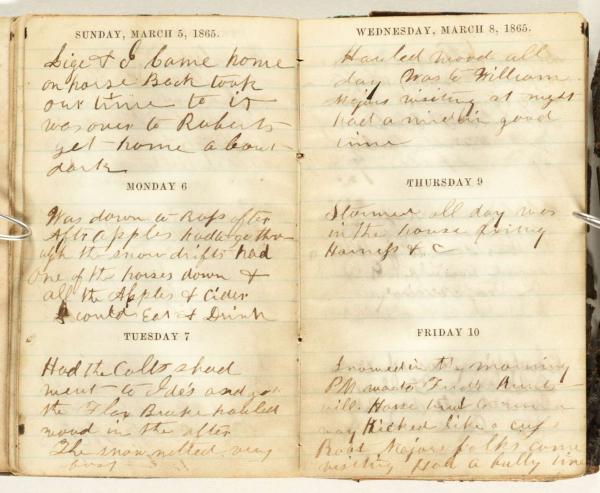 SUNDAY, MARCH 5, 1865.
Lige & I Came home
on horse Back took
our time to it
was over to Roberts
get home about
dark
MONDAY 6
Was down to after
Apples had to go thro-
ugh the snow drifts had
One of the horses down &
all the Apples & Cider
I could Eat & Drink
TUESDAY 7
Had the Colts shod
went to Ide's and got
the Flax Brake hauled
wood in the after
The snow melted very
fast
WEDNESDAY, MARCH 8, 1865.
Hauled wood all
day Was to William
Majors visiting at night
had a good
time
THURSDAY 9
Stormed all day was
in the house fixing
Harness & C
FRIDAY 10
Snowed in the morning
PM went to Fred's
ville. Horse tried to run a
way Kicked like a
Majors folks came
visiting Had a bully time